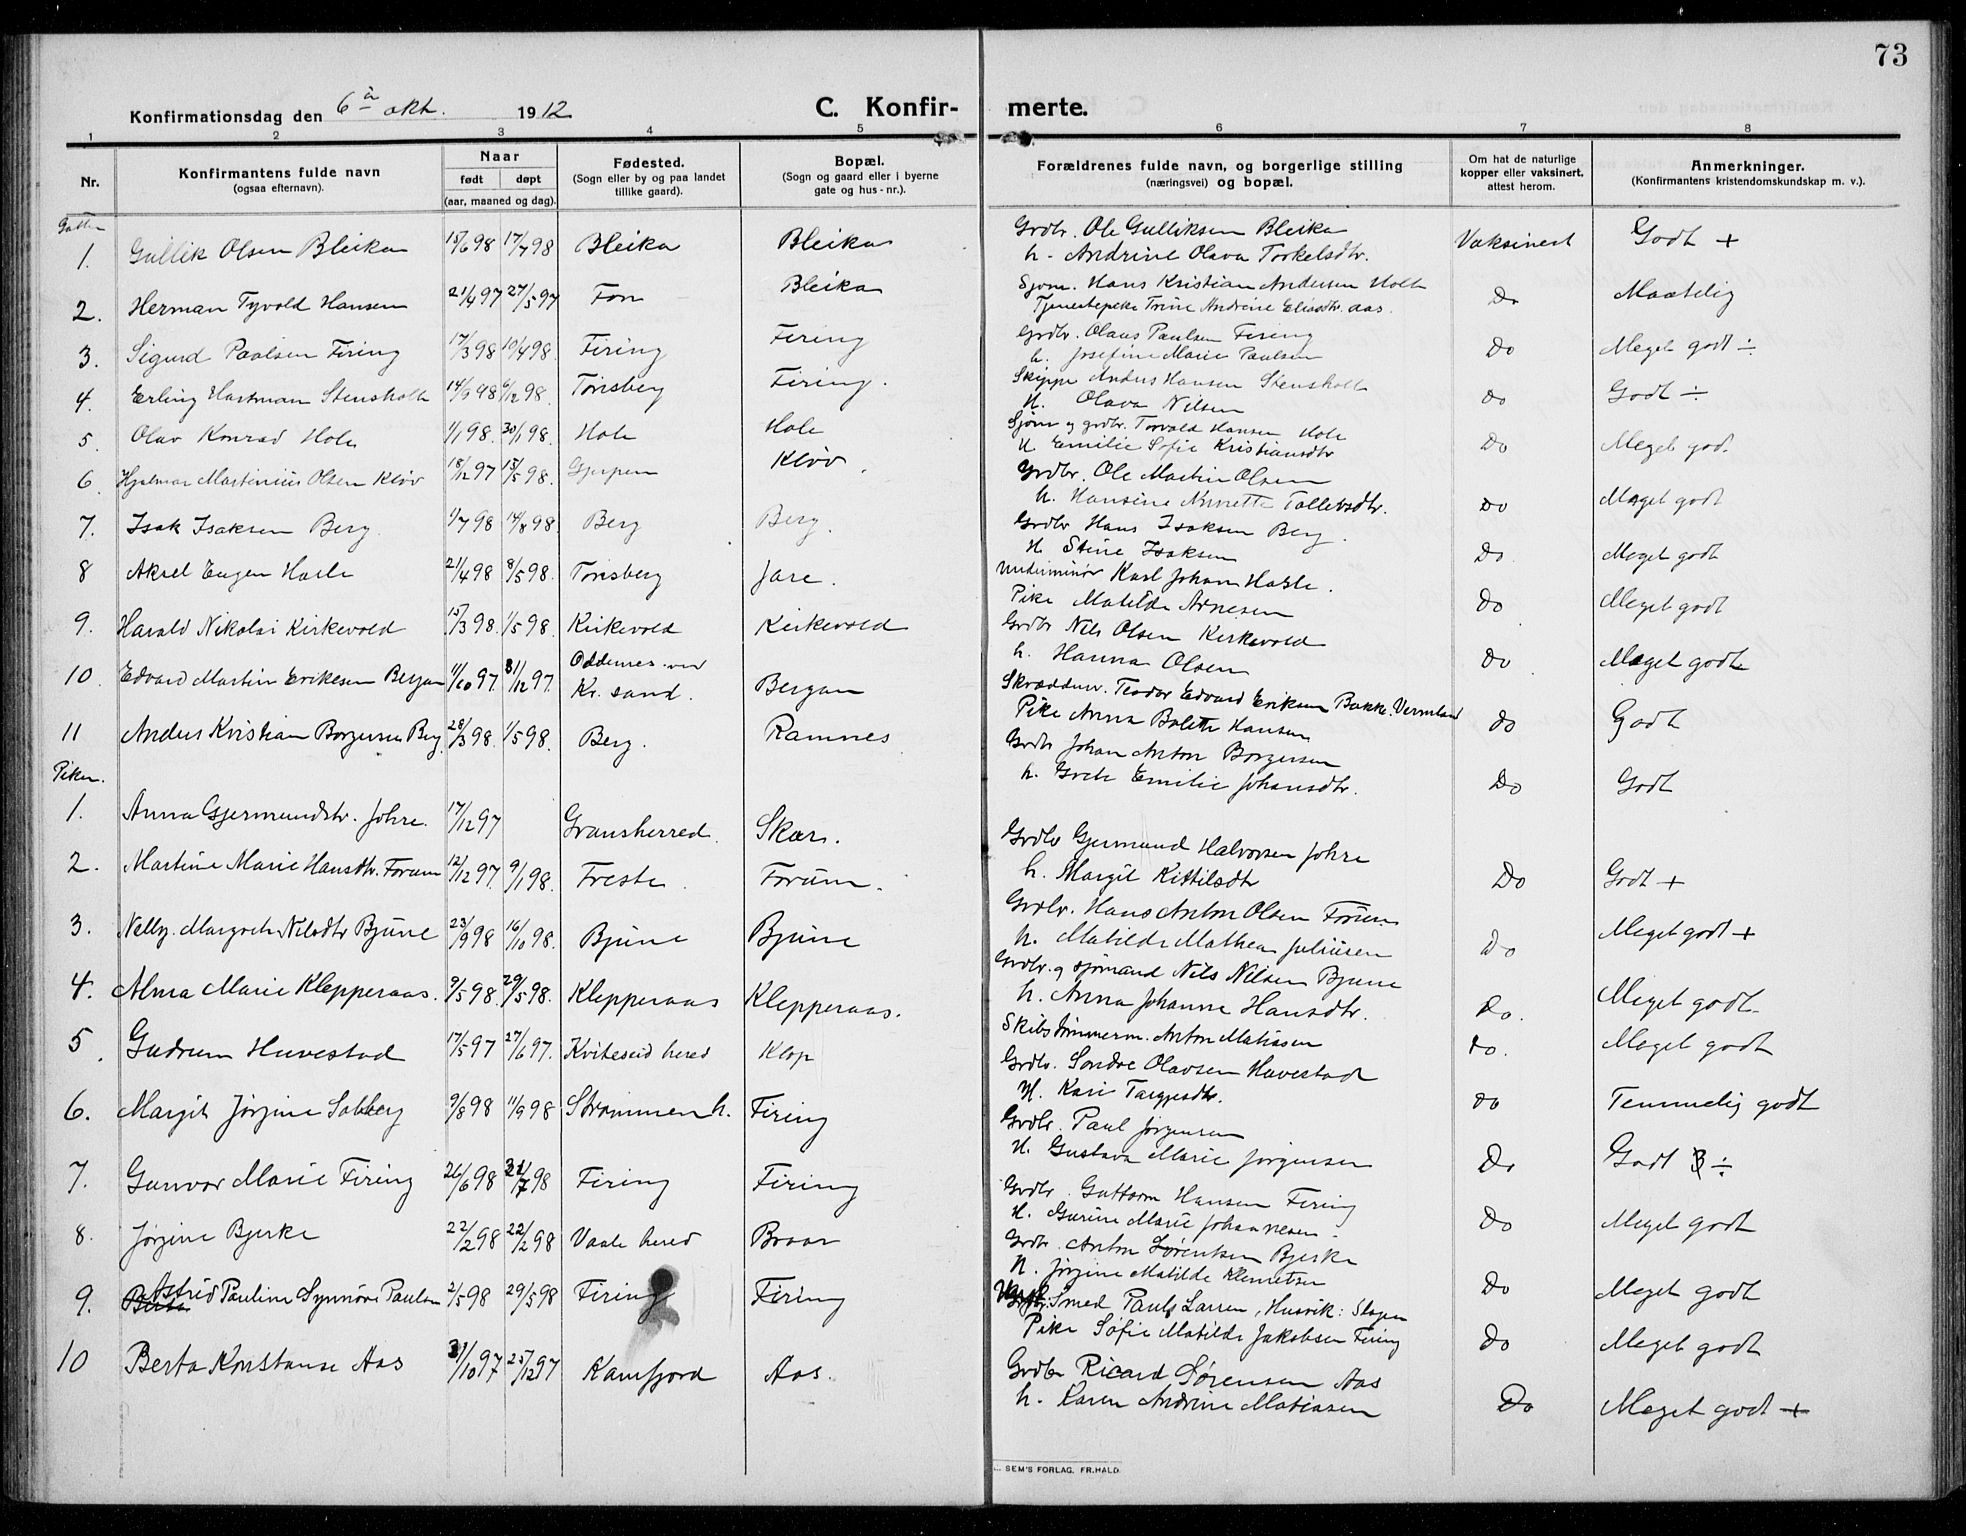 73
Konfirmationsdag den 6te okt. 1912
C. Konfir- merte.
1 2 3 4 5 6 7 8
Nr.
Konfirmantens fulde navn
(ogsaa efternavn).
Naar
født døpt
(aar, maaned og dag).
Fødested.
(Sogn eller by og paa landet
tillike gaard).
Bopæl.
(Sogn og gaard eller i byerne
gate og hus-nr.).
Forældrenes fulde navn, og borgerlige stilling
(næringsvei) og bopæl.
Om hat de naturlige
kopper eller vaksinert,
attest herom.
Anmerkninger.
(Konfirmantens kristendomskundskap m. v.).
Gutter
1. Gullik Olsen Bleika 15/6 98 17/7 98 Bleika Bleika Grdbr. Ole Gulliksen Bleika
h. Andrine Olava Torkelsdtr. Vaksinert Godt +
2. Herman Tyvold Hansen 21/4 97 27/5 97 Fon Bleika Sjøm. Hans Kristian Andersen Holt
Tjenestepike Trine Andrine Eliasdtr. Aas. Do Maatelig
3. Sigurd Paulsen Firing 17/3 98 10/4 98 Firing Firing Grdbr. Olaus Paulsen Firing
h. Josefine Marie Paulsen Do Meget godt ÷
4. Erling Hartman Stensholt 14/9 98 6/12 98. Tønsberg Firing. Skipper Anders Hansen Stensholt
H. Olava Nilsen do Godt ÷
5 Olav Konrad Hole 1/1 98. 30/1 98. Hole Hole Sjøm og grdbr. Torvald Hansen Hole
H Emilie Sofie Kristiansdtr Do Meget god.
6. Hjalmar Martinius Olsen Kløv 18/12 97 15/5 98. Gjerpen Kløv. Grdbr. Ole Martin Olsen
h. Hansine Annette Tollefsdtr. Do Meget godt
7. Isak Isaksen Berg. 1/7 98 14/8 98 Berg Berg. Grdbr Hans Isaksen Berg.
H. Stine Isaksen Do Meget godt
8 Aksel Eugen Hasle 21/4 98 8/5 98. Tønsberg Jare. Underminør Karl Johan Hasle.
Pike Matilde Arnesen Do Meget godt
9. Harald Nikolai Kirkevold 15/3 98. 1/5 98. Kirkevold Kirkevold Grdbr Nils Olsen Kirkevold
h. Hanna Olsen Do Meget godt
10. Edvard Martin Eriksen Bergan 1/10 97. 31/12 97. Oddernes ved
Kr. sand. Bergan Skrædderm. Teodor Edvard Eriksen Bakke. Vermland
Pike Anna Bolette Hansen do Godt
11 Anders Kristian Borgersen Berg 28/3 98. 1/5 98. Berg. Ramnes Grdbr Johan Anton Borgersen
h. Grete Emilie Johansdtr. Do Godt
Piker.
1. Anna Gjermundsdtr. Johre. 17/12 97 Gransherred. Skær. Grdbr Gjermund Halvorsen Johre
h. Margit Kittilsdtr Do Godt +
2. Martine Marie Hansdtr. Forum 12/12 97. 9/1 98. Freste. Forum. Grdbr. Hans Anton Olsen Forum
h. Matilde Mathea Juliusen Do Meget godt +
3. Nelly Margrete Nilsdtr Bjune 23/9 98 16/10 98. Bjune Bjune Grdbr. og sjømand Nils Nilsen Bjune
h. Anna Johanne Hansdtr. Do. Meget godt
4. Alma Marie Klepperaas. 9/5 98. 29/5 98. Klepperaas Klepperaas. Skibstømmerm. Anton Matiasen do. Meget godt
5. Gudrun Huvestad 17/5 97 27/6 97. Kviteseid hered Klop Grdbr. Sondre Olavsen Huvestad
H. Kari Targjesdtr. do Temmelig godt
6. Margit Jørgine Solberg 9/8 98 11/9 98 Strømmen h. Firing Grdbr. Paul Jørgensen
H. Gustava Marie Jørgensen Do Godt ÷
7. Gunvor Marie Firing 26/6 98 31/7 98 Firing Firing Grdbr. Guttorm Hansen Firing
H. Gurine Marie Johannesen. Do Meget godt
8. Jørgine Bjerke 22/2 98 22/2 98 Vaale hered Braar Grdbr. Anton Sørensen Bjerke
H. Jørgine Matilde Klemetsen Do Meget godt
9. Berta Astrid Pauline Synnøve Paulsen 2/5 98 29/5 98 Firing Firing Smed Paul Larsen, Husvik: Slagen
Pike Sofie Matilde Jakobsen Firing Do Meget godt
10 Berta Konstanse Aas 31/10 97 25/12 97 Kamfjord Aas. Grdbr Ricard Sørensen Aas
h. Karen Andrine Matiasen Do Meget godt +
SEM'S FORLAG. FR.HALD